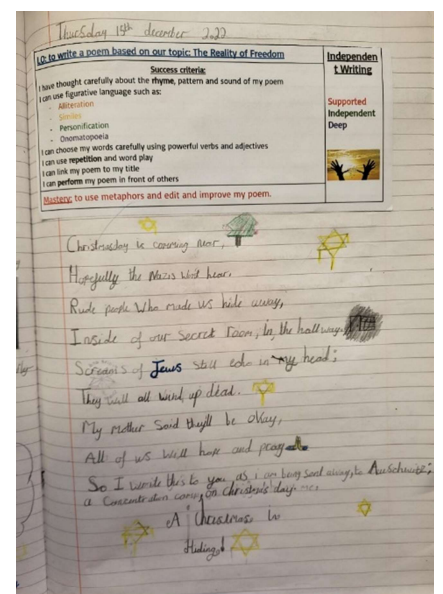 Thursday 15th december 2022
LO: to write a poem based on our topic The Reality of Freedom
Success criteria:
I have thought carefully about the rhyme, pattern and sound of my poem
I can use figurative language such as:
- Alliteration
- Similes
- Personification
- Onomatopoeia
I can choose my words carefully using powerful verbs and adjectives
I can use repetition and word play
I can link my poem to my title
I can perform my poem in front of others
Mastery: to use metaphors and edit and improve my poem.
Independen
t Writing
Supported
Independent
Deep
Christmasday is coming near,
Hopefully the Nazis wont hear.
Rude people who made us hide away,
Inside of our secret room, In the hallway.
Screams of Jews still echo in my head;
They will all wind up dead.
My mother said they'll be okay,
All of us will hope and pray
So I write this to you, as i am being sent along, to Auschwitz;
a concentration camp, on christmas day
A Christmas In
Hiding!